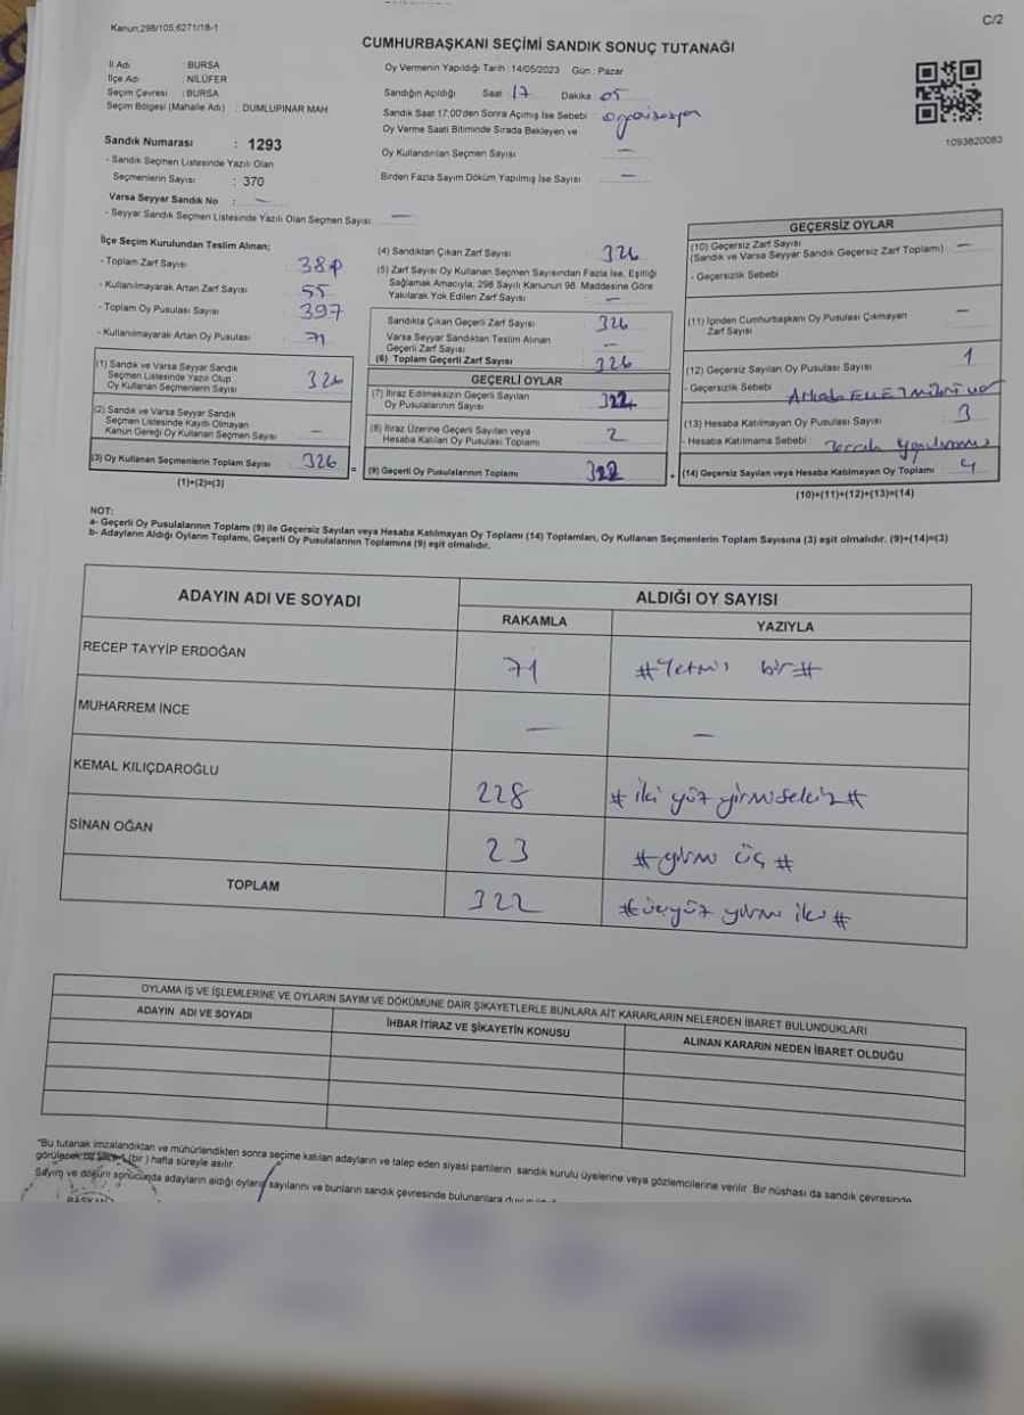 Kanun:298/105,6271/18-1
C/2
CUMHURBAŞKANI SEÇİMİ SANDIK SONUÇ TUTANAĞI
İl Adı : BURSA
İlçe Adı : NİLÜFER
Seçim Çevresi : BURSA
Seçim Bölgesi (Mahalle Adı) : DUMLUPINAR MAH
Oy Vermenin Yapıldığı Tarih : 14/05/2023 Gün : Pazar
Sandığın Açıldığı Saat 17 Dakika 05
Sandık Saat 17:00'den Sonra Açılmış İse Sebebi organizasyon
Oy Verme Saati Bitiminde Sırada Bekleyen ve
Oy Kullandırılan Seçmen Sayısı —
Birden Fazla Sayım Döküm Yapılmış İse Sayısı —
1093820083
Sandık Numarası : 1293
- Sandık Seçmen Listesinde Yazılı Olan
Seçmenlerin Sayısı : 370
Varsa Seyyar Sandık No : —
- Seyyar Sandık Seçmen Listesinde Yazılı Olan Seçmen Sayısı —
İlçe Seçim Kurulundan Teslim Alınan;
- Toplam Zarf Sayısı
- Kullanılmayarak Artan Zarf Sayısı 55
- Toplam Oy Pusulası Sayısı 397
- Kullanılmayarak Artan Oy Pusulası 71
(1) Sandık ve Varsa Seyyar Sandık
Seçmen Listesinde Yazılı Olup
Oy Kullanan Seçmenlerin Sayısı 326
(2) Sandık ve Varsa Seyyar Sandık
Seçmen Listesinde Kayıtlı Olmayan
Kanun Gereği Oy Kullanan Seçmen Sayısı —
(3) Oy Kullanan Seçmenlerin Toplam Sayısı 326
(1)+(2)=(3)
(4) Sandıktan Çıkan Zarf Sayısı 326
(5) Zarf Sayısı Oy Kullanan Seçmen Sayısından Fazla İse, Eşitliği
Sağlamak Amacıyla, 298 Sayılı Kanunun 98. Maddesine Göre
Yakılarak Yok Edilen Zarf Sayısı —
Sandıkta Çıkan Geçerli Zarf Sayısı 326
Varsa Seyyar Sandıktan Teslim Alınan
Geçerli Zarf Sayısı —
(6) Toplam Geçerli Zarf Sayısı 326
GEÇERLİ OYLAR
(7) İtiraz Edilmeksizin Geçerli Sayılan
Oy Pusulalarının Sayısı
(8) İtiraz Üzerine Geçerli Sayılan veya
Hesaba Katılan Oy Pusulası Toplamı 2
(9) Geçerli Oy Pusulalarının Toplamı 322
GEÇERSİZ OYLAR
(10) Geçersiz Zarf Sayısı —
(Sandık ve Varsa Seyyar Sandık Geçersiz Zarf Toplamı)
- Geçersizlik Sebebi
(11) İçinden Cumhurbaşkanı Oy Pusulası Çıkmayan
Zarf Sayısı —
(12) Geçersiz Sayılan Oy Pusulası Sayısı 1
- Geçersizlik Sebebi
(13) Hesaba Katılmayan Oy Pusulası Sayısı 3
- Hesaba Katılmama Sebebi
(14) Geçersiz Sayılan veya Hesaba Katılmayan Oy Toplamı 4
(10)+(11)+(12)+(13)=(14)
NOT:
a- Geçerli Oy Pusulalarının Toplamı (9) ile Geçersiz Sayılan veya Hesaba Katılmayan Oy Toplamı (14) Toplamları, Oy Kullanan Seçmenlerin Toplam Sayısına (3) eşit olmalıdır. (9)+(14)=(3)
b- Adayların Aldığı Oyların Toplamı, Geçerli Oy Pusulalarının Toplamına (9) eşit olmalıdır.
ADAYIN ADI VE SOYADI
ALDIĞI OY SAYISI
RAKAMLA
YAZIYLA
RECEP TAYYİP ERDOĞAN 71 #Yetmiş bir#
MUHARREM İNCE — —
KEMAL KILIÇDAROĞLU 228 #iki yüz yirmi sekiz#
SİNAN OĞAN 23 #yirmi üç#
TOPLAM 322 #üçyüz yirmi iki#
OYLAMA İŞ VE İŞLEMLERİNE VE OYLARIN SAYIM VE DÖKÜMÜNE DAİR ŞİKAYETLERLE BUNLARA AİT KARARLARIN NELERDEN İBARET BULUNDUKLARI
ADAYIN ADI VE SOYADI
İHBAR İTİRAZ VE ŞİKAYETİN KONUSU
ALINAN KARARIN NEDEN İBARET OLDUĞU
"Bu tutanak imzalandıktan ve mühürlendikten sonra seçime katılan adayların ve talep eden siyasi partilerin sandık kurulu üyelerine veya gözlemcilerine verilir. Bir nüshası da sandık çevresinde
görülecek bir yere 1 (bir) hafta süreyle asılır.
Sayım ve döküm sonucunda adayların aldığı oyların sayılarını ve bunların sandık çevresinde bulunanlara
BAŞKAN